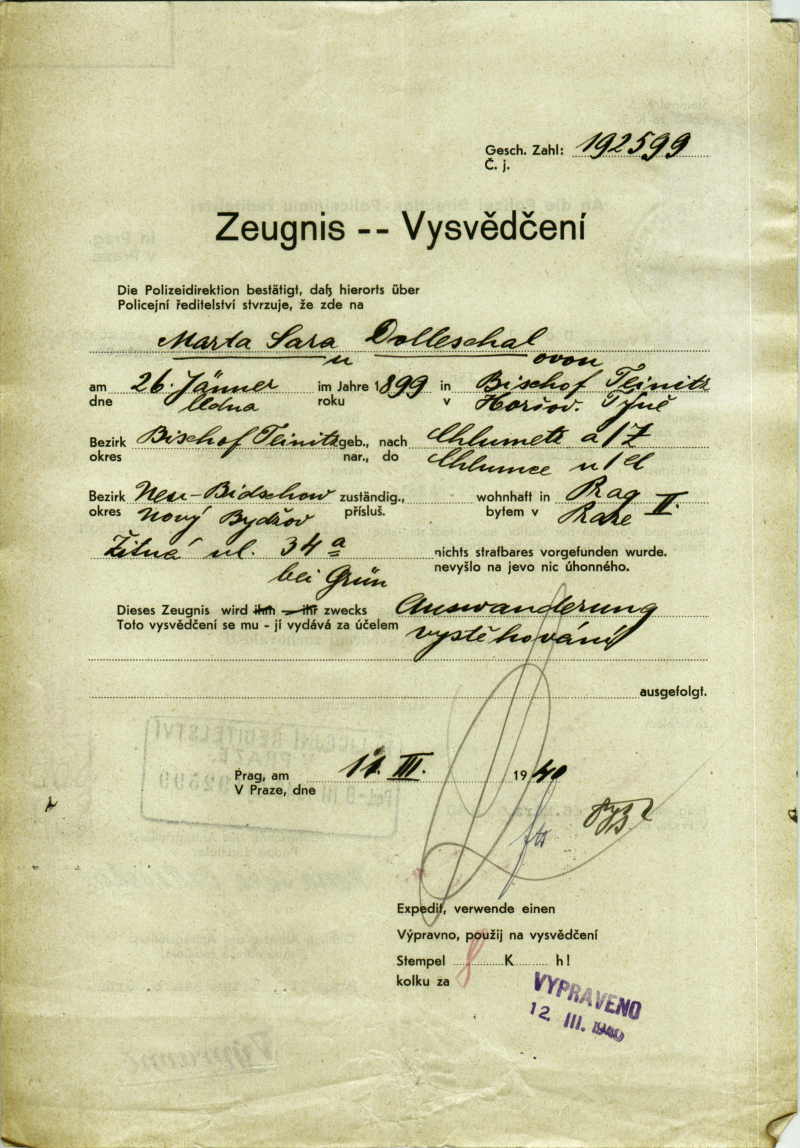 Gesch. Zahl: 192599
Č. j.
Zeugnis -- Vysvědčení
Die Polizeidirektion bestätigt, daß hierorts über
Policejní ředitelství stvrzuje, že zde na
Marta Sara Dolleschal
ovou
am 26. Jänner im Jahre 1899 in Bischof Teinitz
dne ledna roku v Horšov. Týně
Bezirk Bischof Teinitz geb., nach Chlumetz a/Z
okres nar., do Chlumce n/C
Bezirk Neu-Bidschow zuständig., wohnhaft in Prag II.
okres Nový Bydžov přísluš. bytem v Praze
Žitná ul. 34a nichts strafbares vorgefunden wurde.
bei Grün nevyšlo na jevo nic úhonného.
Dieses Zeugnis wird ihm - ihr zwecks Auswanderung
Toto vysvědčení se mu - jí vydává za účelem vystěhování
ausgefolgt.
Prag, am 11. III. 1940
V Praze, dne
Expedit, verwende einen
Výpravno, použij na vysvědčení
Stempel 8 K h!
kolku za
VYPRAVENO
12. III. 1940